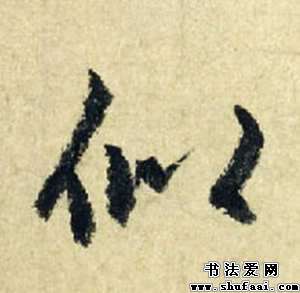 似
书法爱网
www.shufaai.com